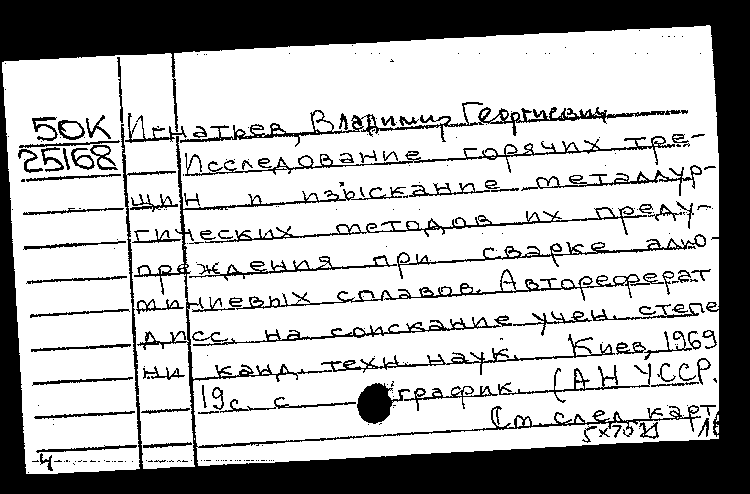 50К Игнатьев, Владимир Георгиевич
25168 Исследование горячих тре-
щин и изыскание металлур-
гических методов их преду-
преждения при сварке алю-
миниевых сплавов. Автореферат
дисс. на соискание учен. степе
ни канд. техн. наук. Киев, 1969
19с. с график. (АН УССР.
См. след. карт
4